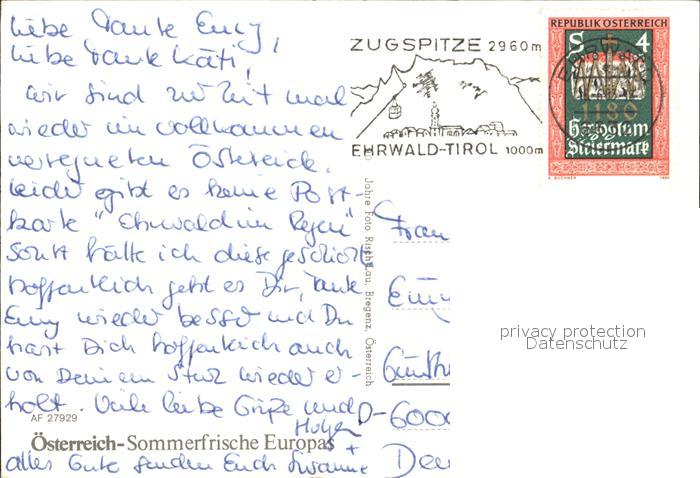 liebe Tante Emy,
liebe Tante Käti!
wir sind zur Zeit mal
wieder im vollkommen
verregneten Östereich.
leider gibt es keine Post-
karte "Ehrwald im Regen"
sonst hätte ich diese geschickt
hoffentlich geht es Dir, Tante
Emy wieder besser und Du
hast Dich hoffentlich auch
von Deinem Sturz wieder er-
holt. Viele liebe Grüße und
alles Gute senden Euch Susanne
+ Holger
AF 27929
Österreich-Sommerfrische Europas
Jahre Foto Risch-Lau, Bregenz, Österreich
ZUGSPITZE 2960m
EHRWALD-TIROL 1000m
REPUBLIK ÖSTERREICH
S 4
1180
Hzgtum
Steiermark
1980
Frau
Emy
D-6000
privacy protection
Datenschutz